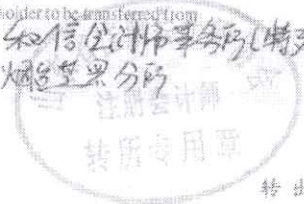 holder to be transferred from
和信会计师事务所(特
烟台芝罘分所
注册会计师
转所专用章
转出